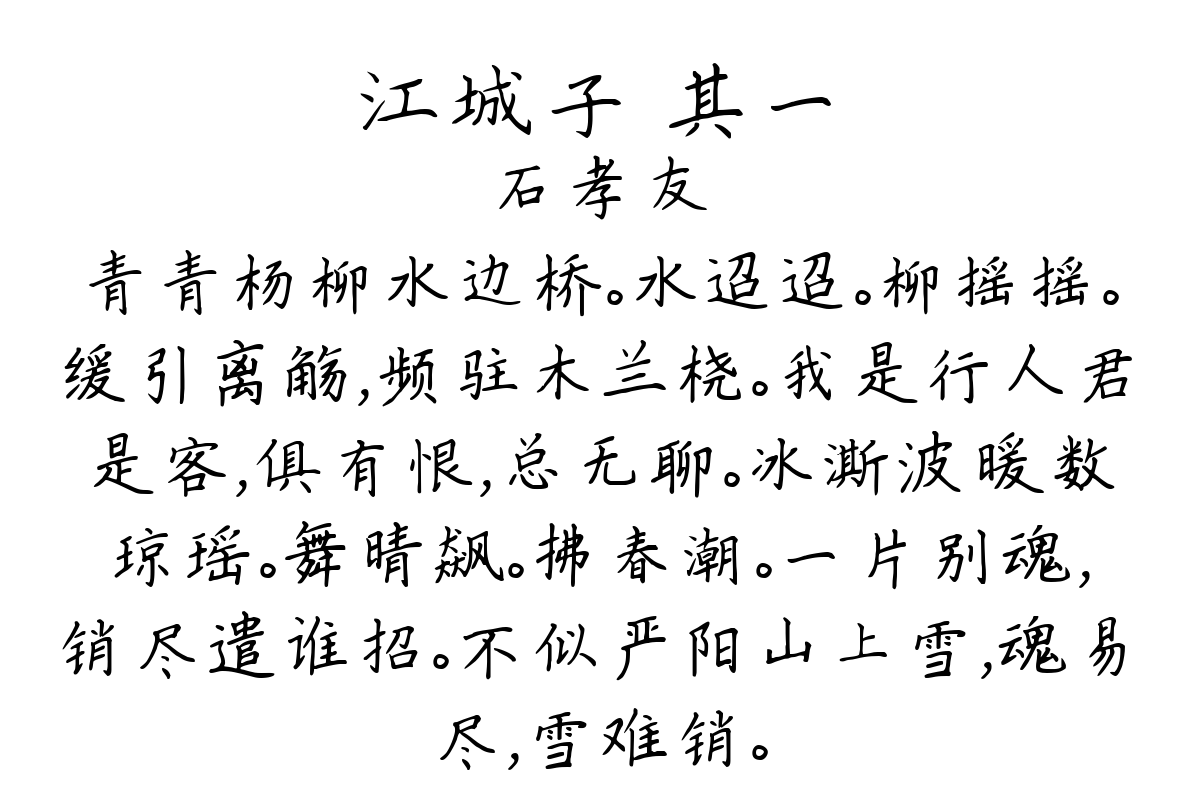 江城子 其一
石孝友
青青杨柳水边桥。水迢迢。柳摇摇。
缓引离觞,频驻木兰桡。我是行人君
是客,俱有恨,总无聊。冰澌波暖数
琼瑶。舞晴飙。拂春潮。一片别魂,
销尽遣谁招。不似严阳山上雪,魂易
尽,雪难销。